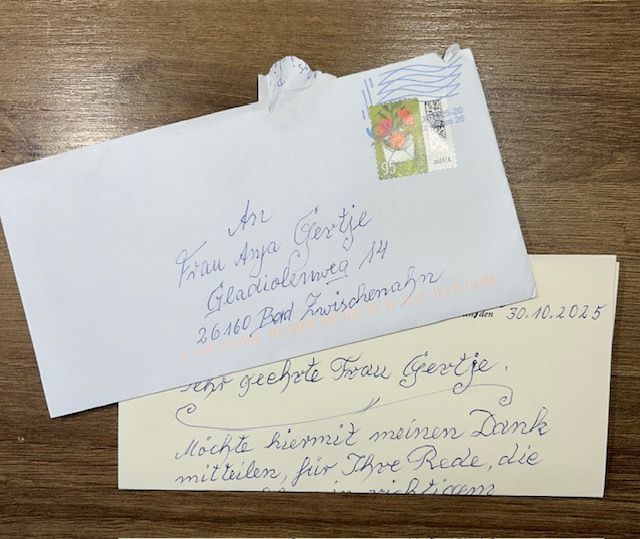 95
An
Frau Anja Gertje
Gladiolenweg 14
26160 Bad Zwischenahn
, den 30.10.2025
Sehr geehrte Frau Gertje.
Möchte hiermit meinen Dank
mitteilen, für Ihre Rede, die
in richtigem